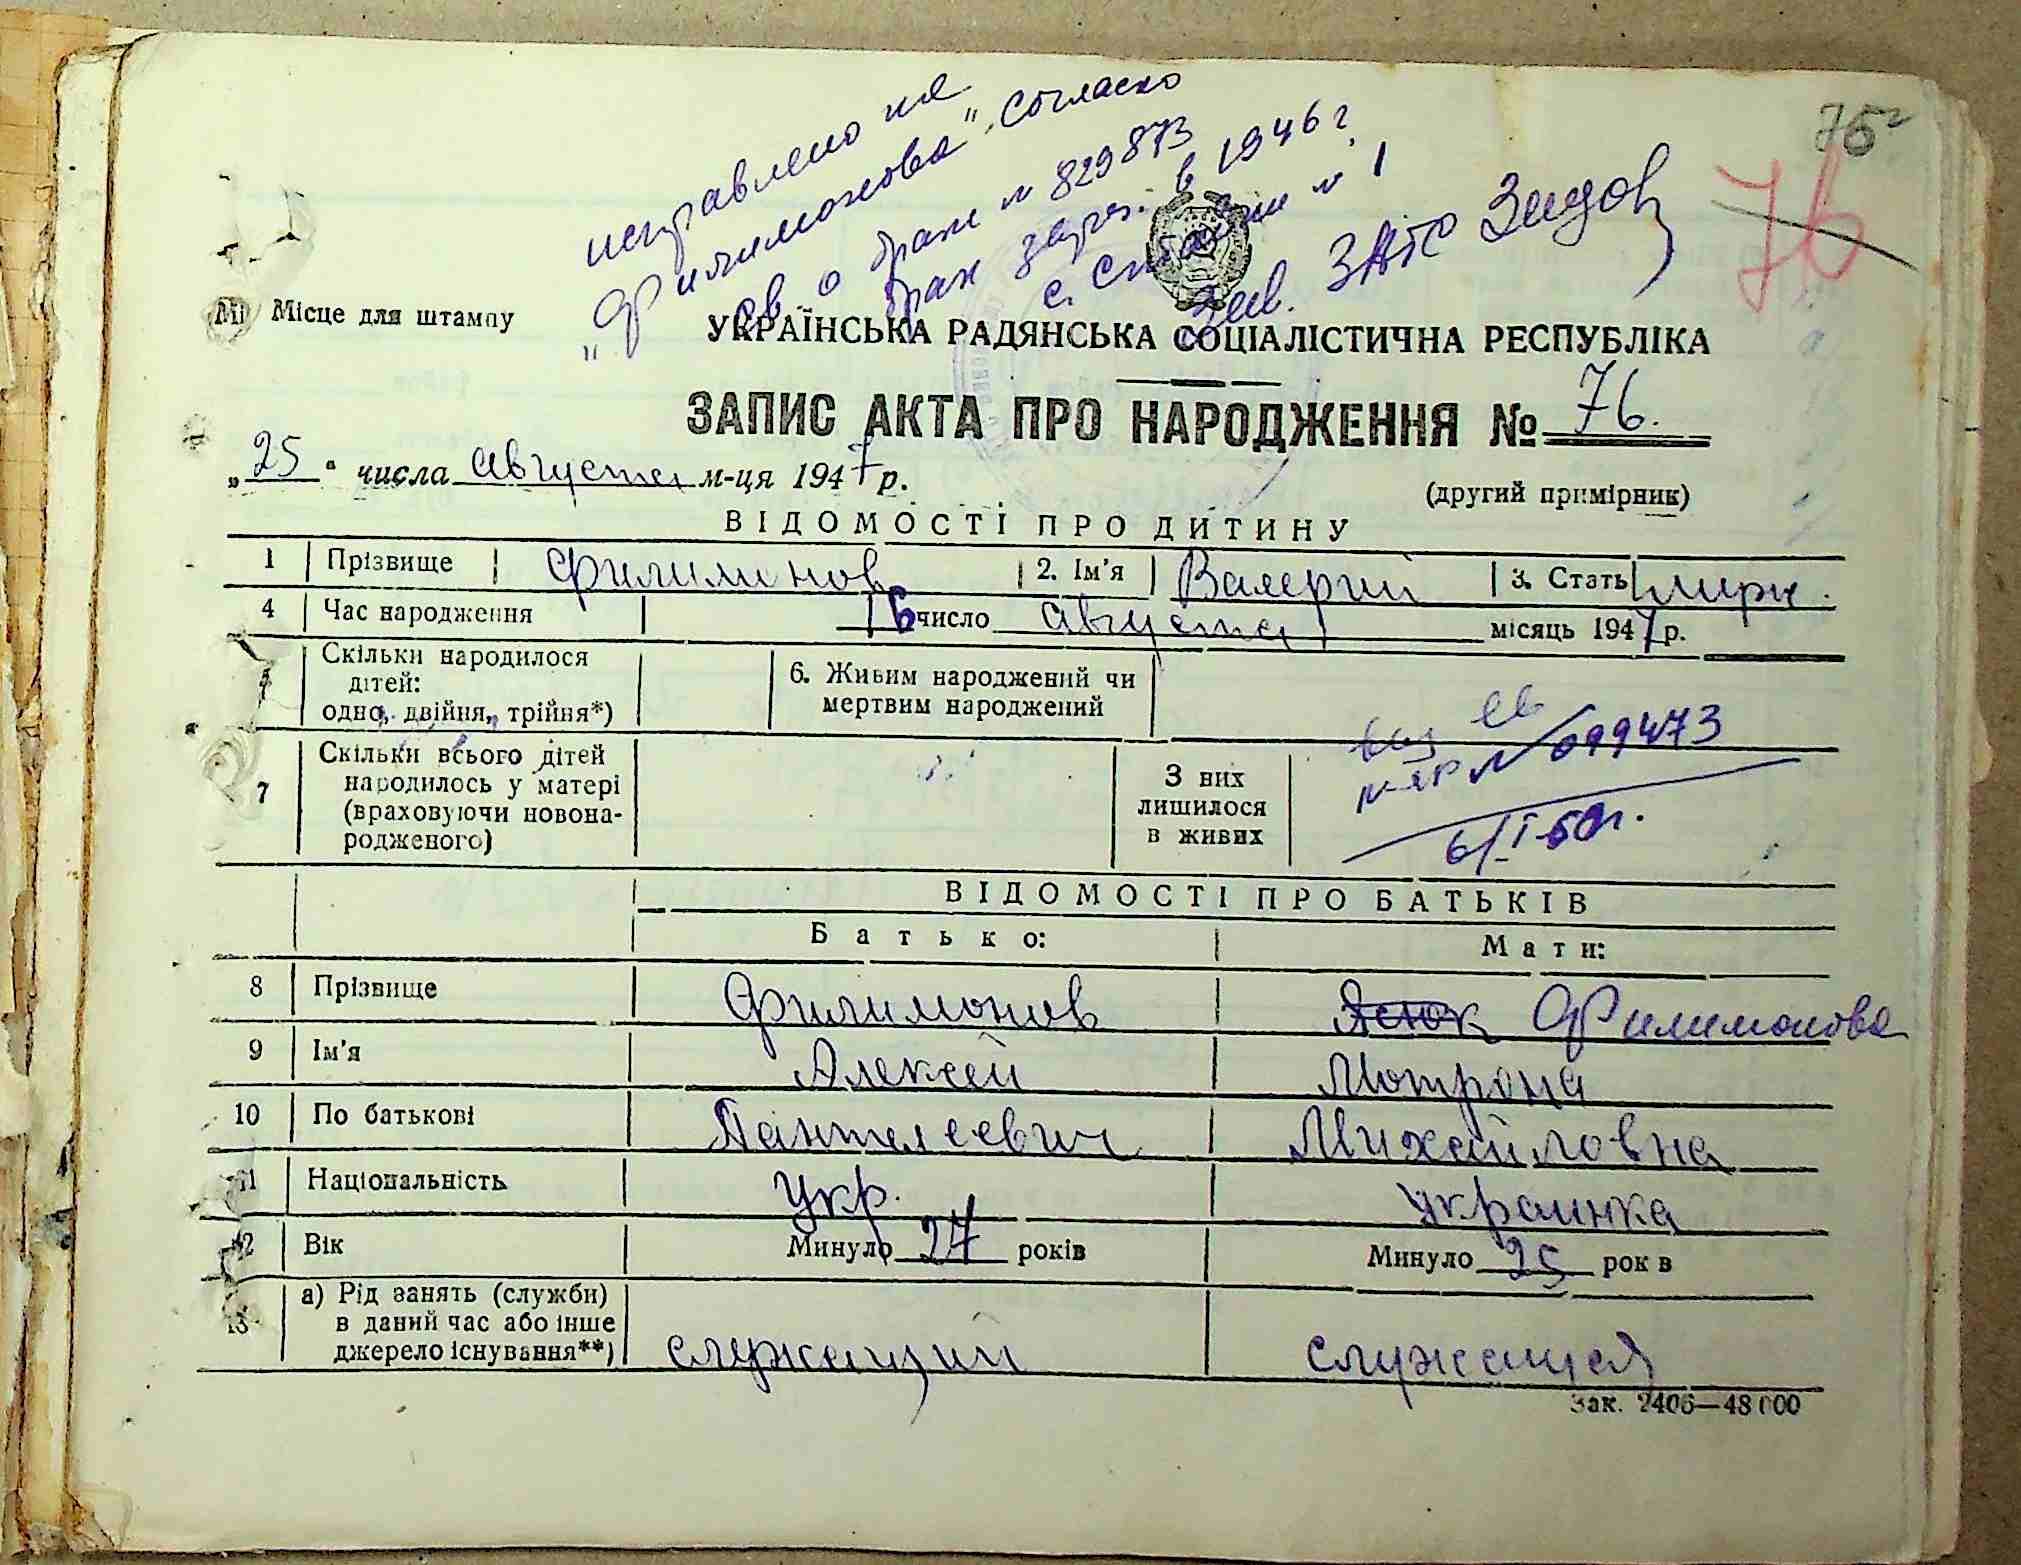 исправлено на
„Филимонова", согласно
св. о браке № 829873
брак зарег. в 1946 г.
зав. ЗАГС
75
76
Місце для штампу
УКРАЇНСЬКА РАДЯНСЬКА СОЦІАЛІСТИЧНА РЕСПУБЛІКА
ЗАПИС АКТА ПРО НАРОДЖЕННЯ № 76.
„25" числа августа м-ця 1947 р.
(другий примірник)
ВІДОМОСТІ ПРО ДИТИНУ
1 Прізвище Филимонов 2. Ім'я Валерий 3. Стать
4 Час народження 16 число августа місяць 1947 р.
Скільки народилося дітей: одно, двійня, трійня*) 6. Живим народжений чи мертвим народжений
№ 099473
7 Скільки всього дітей народилось у матері (враховуючи новонародженого) З них лишилося в живих
ВІДОМОСТІ ПРО БАТЬКІВ
Батько: Мати:
8 Прізвище Филимонов Филимонова
9 Ім'я Алексей Мотрона
10 По батькові Пантелеевич Михайловна
11 Національність укр. украинка
12 Вік Минуло 27 років Минуло 25 рок в
13 а) Рід занять (служби) в даний час або інше джерело існування**) служащий служащая
Зак. 2406—48 000